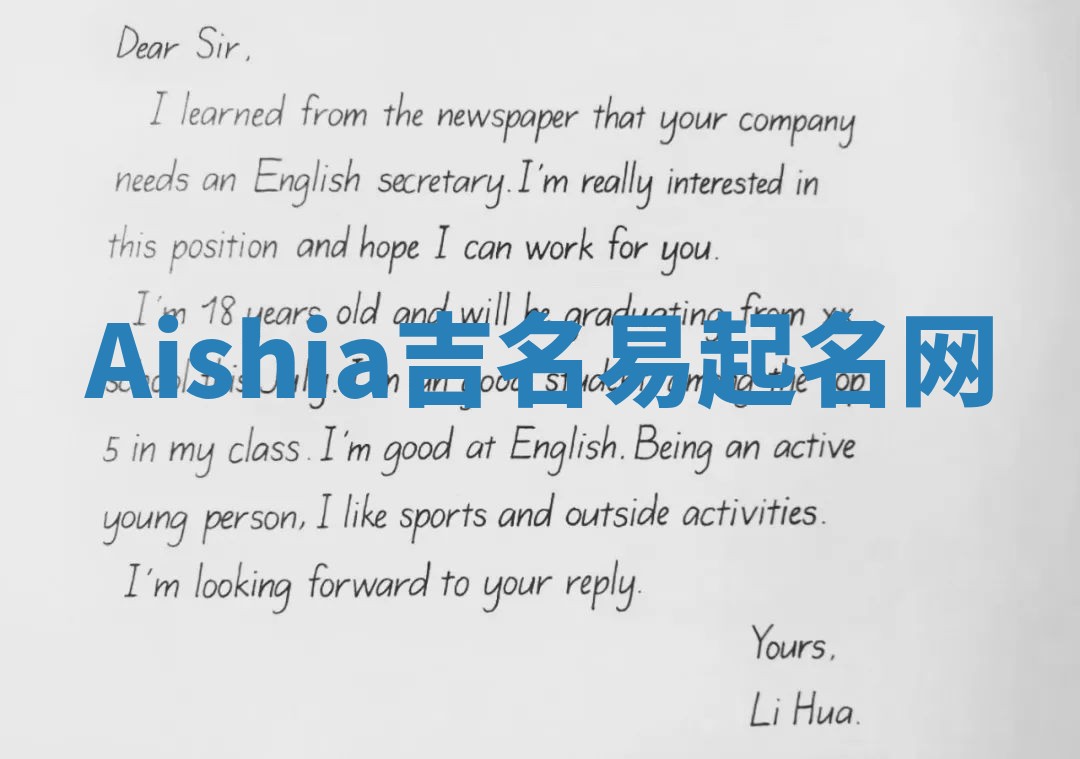 Dear Sir,
I learned from the newspaper that your company
needs an English secretary. I'm really interested in
this position and hope I can work for you.
I'm 18 years old and will be graduating from xx
Aishia吉名易起名网
school this July. I'm an good student among the top
5 in my class. I'm good at English. Being an active
young person, I like sports and outside activities.
I'm looking forward to your reply.
Yours,
Li Hua.